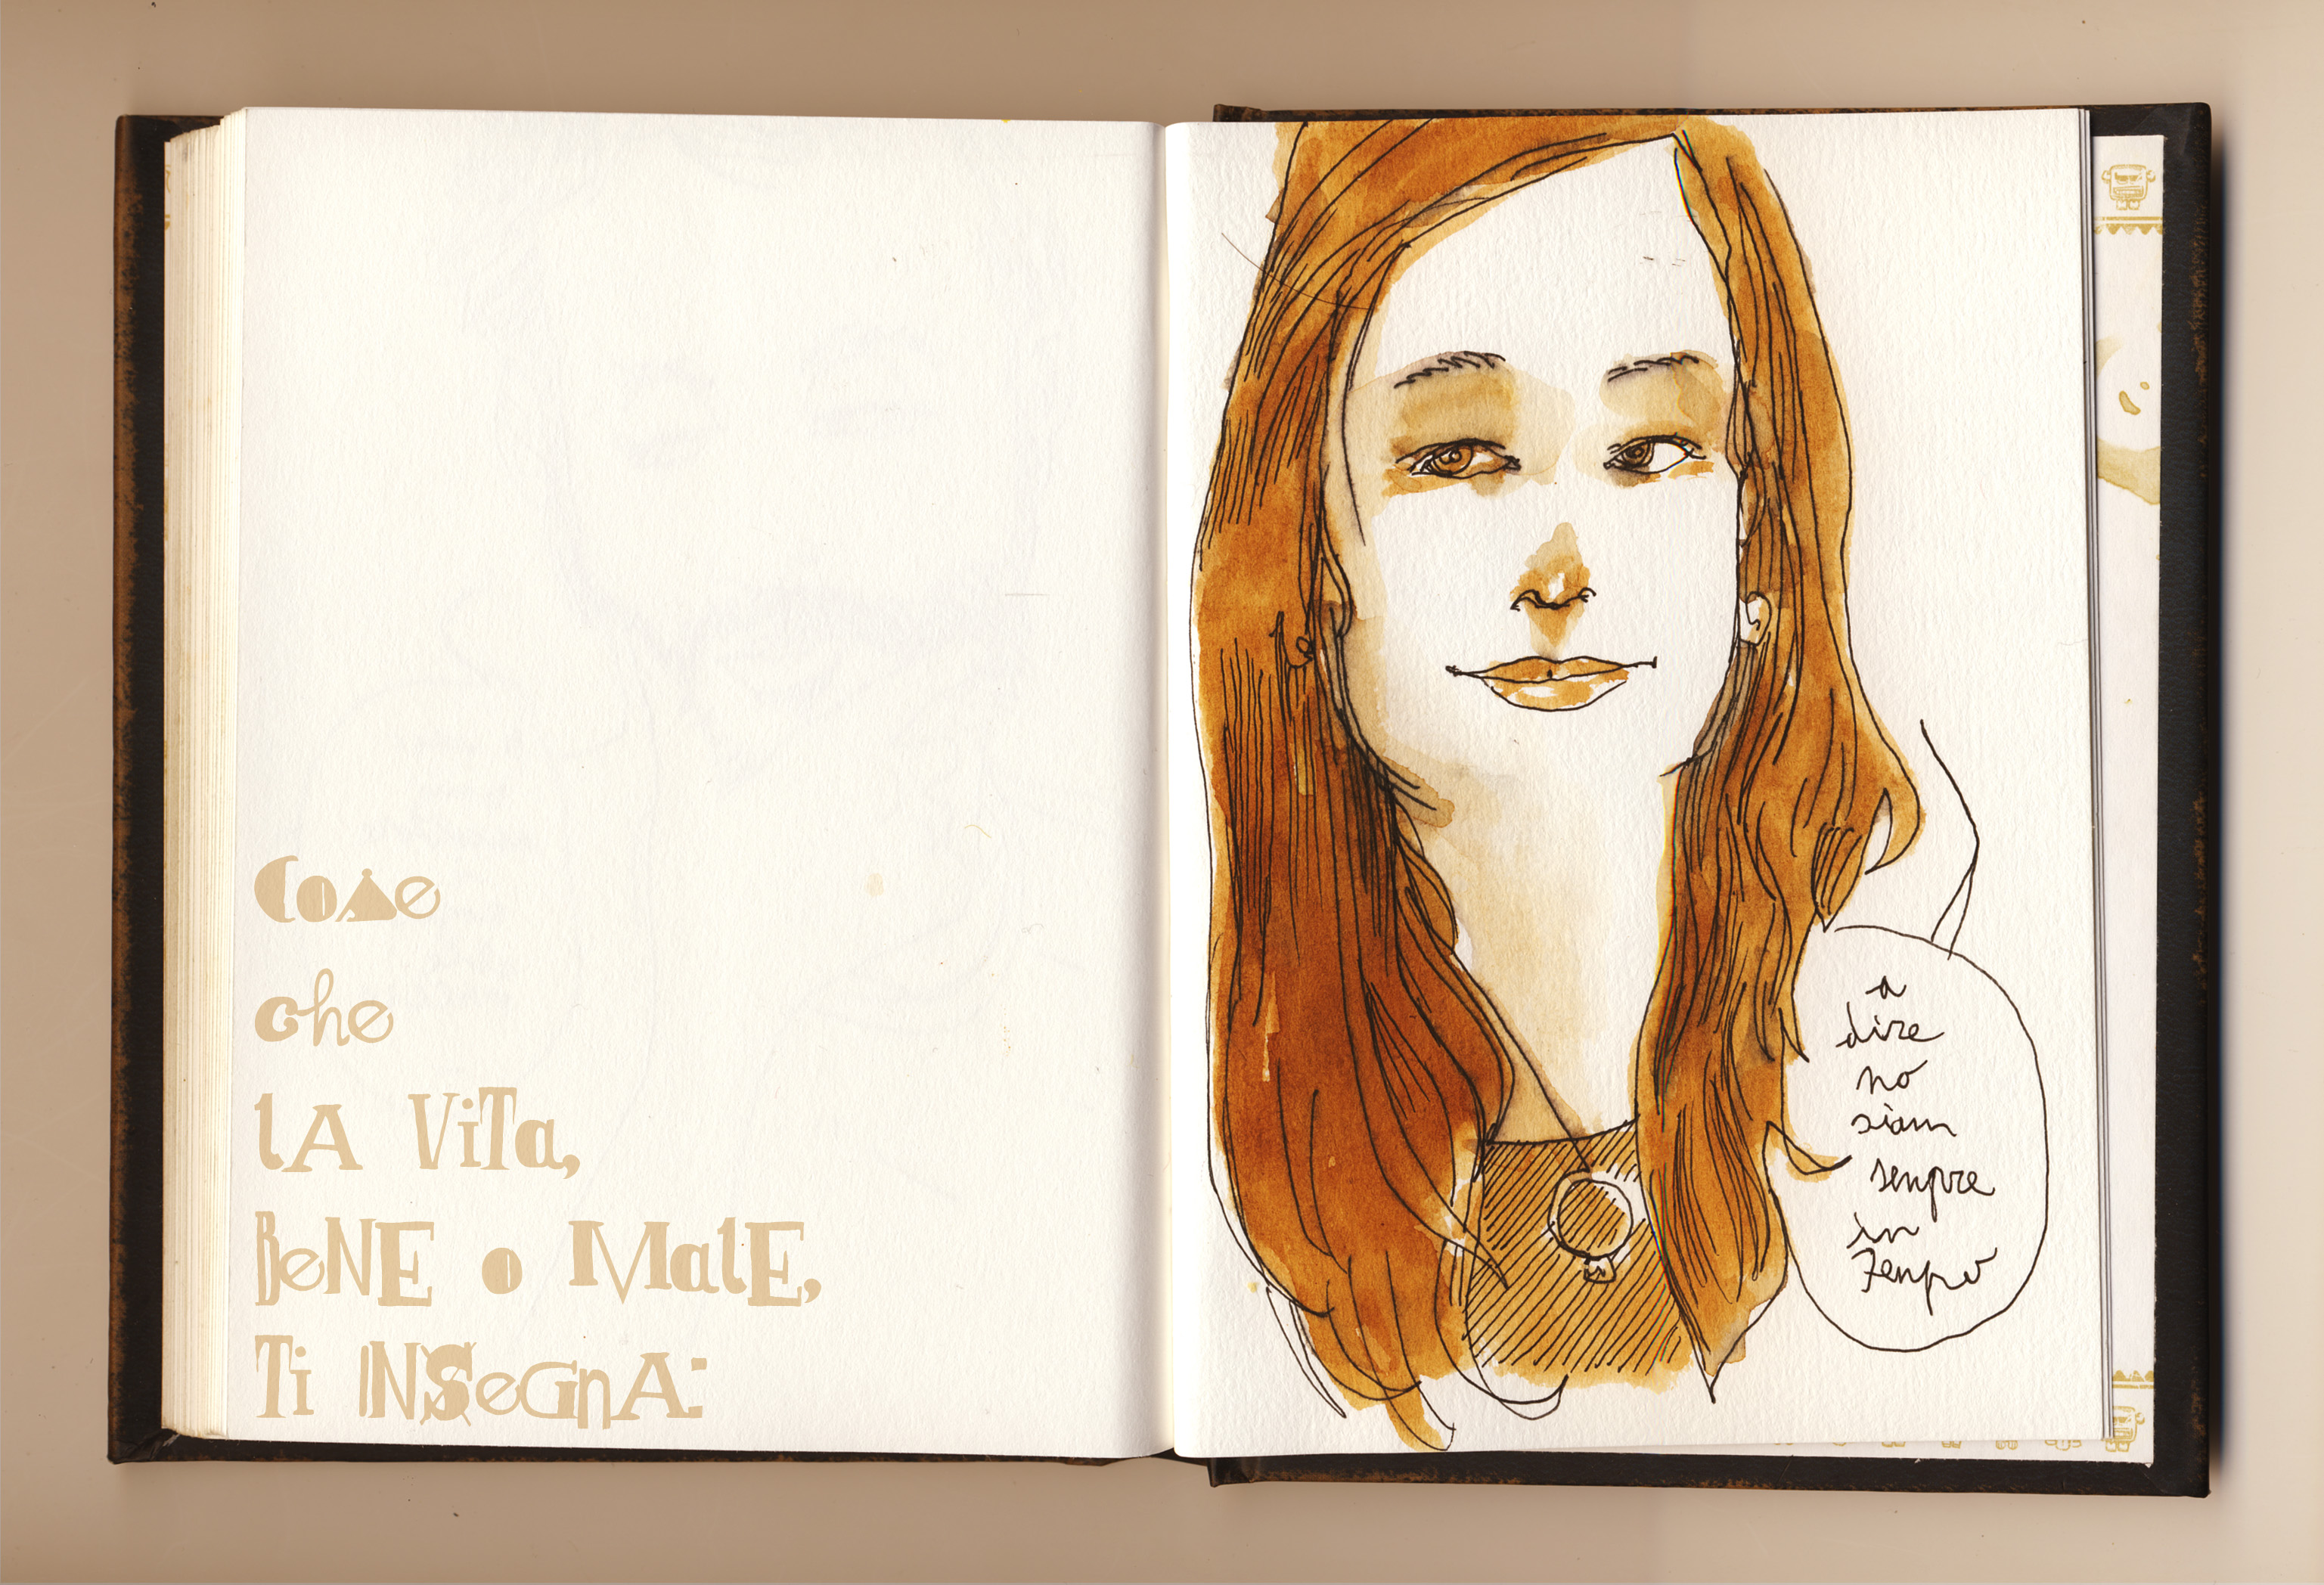 Come
che
lA ViTa,
BeNE o MalE,
Ti INSeGnA:
a
dire
no
siam
sempre
in
Tempo